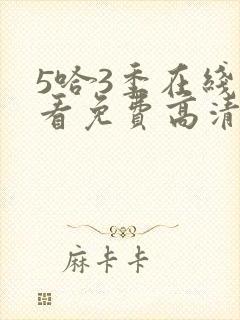 5哈3季在线
看免费高清
麻卡卡